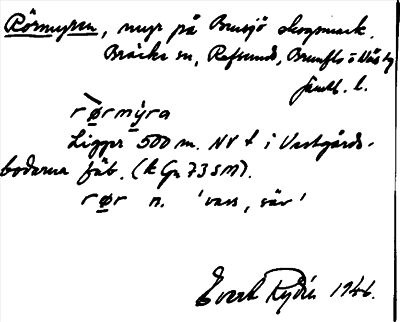 Rörmyren, myr på Bensjö skogsmark,
Bräcke sn, Refsunds, Brunflo o Näs tg
Jämtl. l.
rørmỳra
Ligger 500 m. NV f i Västgårds-
bodarna fäb. (k Gn 73 SM).
rør n. 'vass, säv'
Evert Rydén 1946.